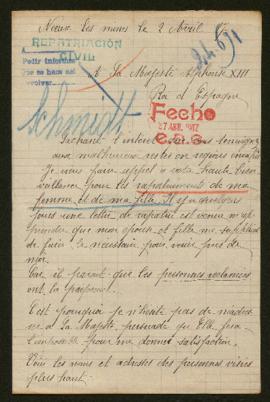 Noeux les mines le 2 Avril
REPATRIACIÓN
CIVIL
Pedir informes
A Sa Majesté Alphonse XIII
Roi d'Espagne
Schmidt
Fecho
27 ABR. 1917
Sachant l'intérêt que vous témoignez
aux malheureux restés en régions envahies
Je viens faire appel à votre haute bien
veillance pour les rapatriements de ma
femme et de ma fille. Il y a quelques
jours une lettre de rapatrié est venue m'ap
prendre que mon épouse et fille
de faire le nécessaire pour venir près de
moi.
Car il parait que les personnes
ont la
C'est pourquoi je n'hésite pas de m'adres
ser à Sa Majesté persuadé que Elle fera
l'impossible pour me donner satisfaction.
Voici les noms et adresses des personnes visées
plus haut: